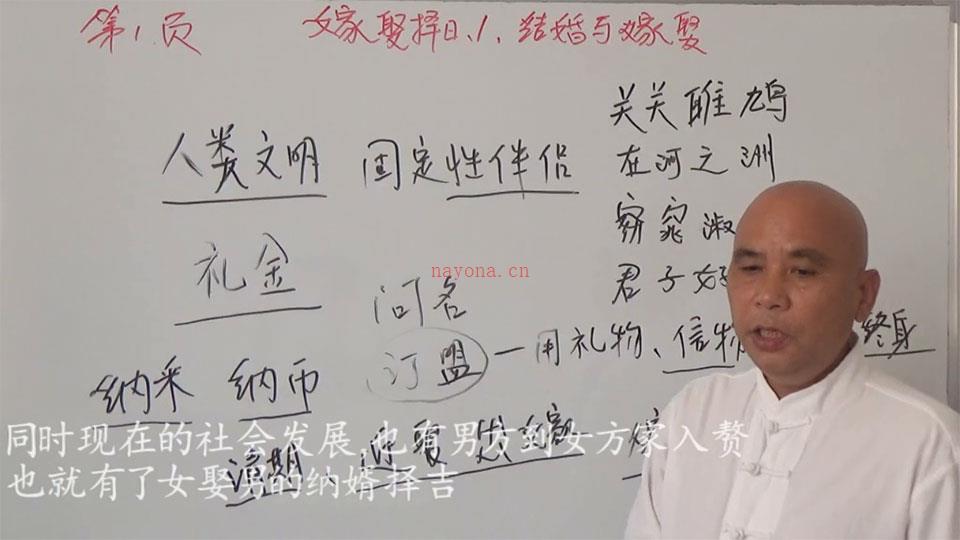 第1页 嫁娶择日、1、结婚与嫁娶
关关雎鸠
在河之洲
窈窕淑
君子好
人类文明 固定性伴侣
礼金
问名
订盟一用礼物、信物 终身
纳采 纳币
请期 迎娶
nayona.cn
同时现在的社会发展 也有男方到女方家入赘
也就有了女娶男的纳婿择吉